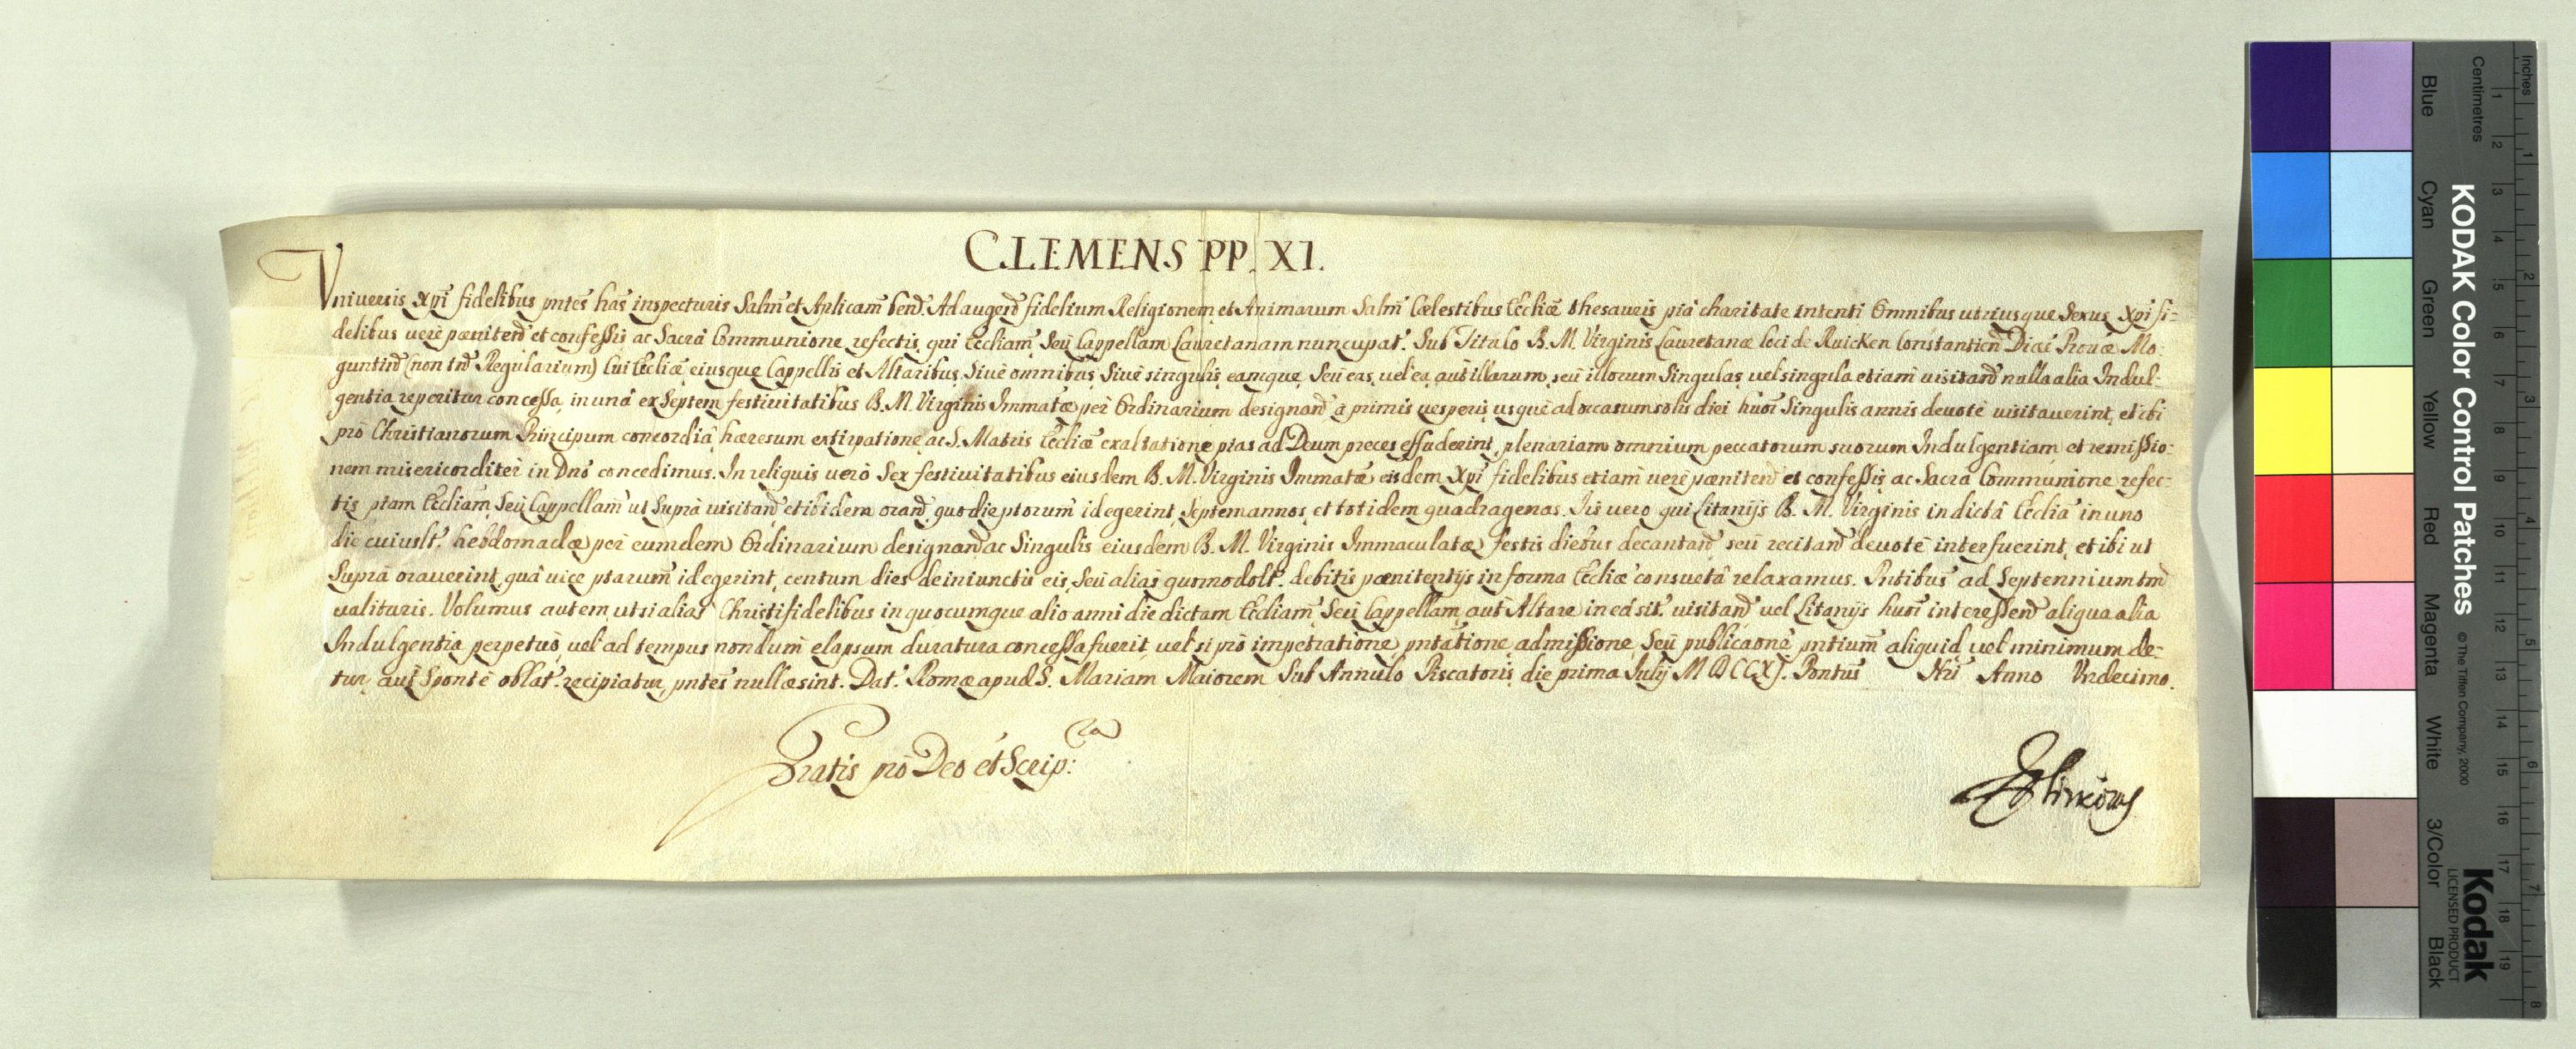 CLEMENS PP. XI.
Universis Xpi fidelibus pntes has inspecturis Salm et Aplicam bend. Ad augend fidelium Religionem et Animarum Salm Cælestibus Eccliæ thesauris piâ charitate intenti Omnibus utriusque Sexus Xpi fi-
delibus verè pænitend et confessis ac Sacrâ Communione refectis, qui Eccliam, Seu Cappellam Lauretanam nuncupat. Sub Titulo B. M. Virginis Lauretanæ loci de Ruicken Constantien Diæc Provæ Mo-
guntin (non tnd Regularium) Cui Eccliæ, eiusque Cappellis et Altaribus, Sivè omnibus Sivè singulis, eamque, Seu eas, vel ea, aut illarum, seu illorum Singulas, vel singula etiam visitand nulla alia Indul-
gentia reperitur concessa, in unâ ex Septem festivitatibus B. M. Virginis Immatæ per Ordinarium designand à primis vesperis, usque ad occasum solis diei huoi Singulis annis devotè visitaverint, et ibi
prò Christianorum Principum concordiâ, hæresum extirpatione, ac S. Matris Eccliæ exaltatione pias ad Deum preces effuderint, plenariam omnium peccatorum suorum Indulgentiam, et remissio-
nem misericorditer in Dno concedimus. In reliquis verò Sex festivitatibus eiusdem B. M. Virginis Immatæ eisdem Xpi fidelibus etiam verè pænitend et confessis, ac Sacrâ Communione refec-
tis ptam Eccliam, Seu Cappellam ut Suprà visitand et ibidem orand, quo die ptorum id egerint, Septem annos, et totidem quadragenas. Iis vero qui Litaniis B. M. Virginis in dictâ Eccliâ in uno
die cuiuslt. hebdomadæ per eumdem Ordinarium designand ac Singulis eiusdem B. M. Virginis Immaculatæ festis diebus decantand seu recitand devotè interfuerint, et ibi ut
Suprà oraverint, quâ vice ptarum id egerint, centum dies de iniunctis eis, Seu aliàs quomodolt. debitis pænitentijs in forma Eccliæ consuetâ relaxamus. Pntibus ad Septennium tm
valituris. Volumus autem, ut si aliàs Christifidelibus in quocumque alio anni die dictam Eccliam, Seu Cappellam, aut Altare in eâ sit. visitand vel Litanijs huoi interessend aliqua alia
Indulgentia perpetuò, vel ad tempus nondum elapsum duratura concessa fuerit, vel si prò impetratione, pntatione, admissione, Seu publicaone pntium aliquid vel minimum de-
tur, aut Sponte oblat. recipiatur, pntes nullæ sint. Dat. Romæ apud S. Mariam Maiorem Sub Annulo Piscatoris, die prima Julij MDCCXJ. Pontus Nri Anno Undecimo.
Gratis prò Deo et Scrip:ra
KODAK Color Control Patches
© The Tiffen Company, 2000
Kodak
LICENSED PRODUCT
Inches
Centimetres
Blue Cyan Green Yellow Red Magenta White 3/Color Black
1 2 3 4 5 6 7 8 9 10 11 12 13 14 15 16 17 18 19
1 2 3 4 5 6 7 8